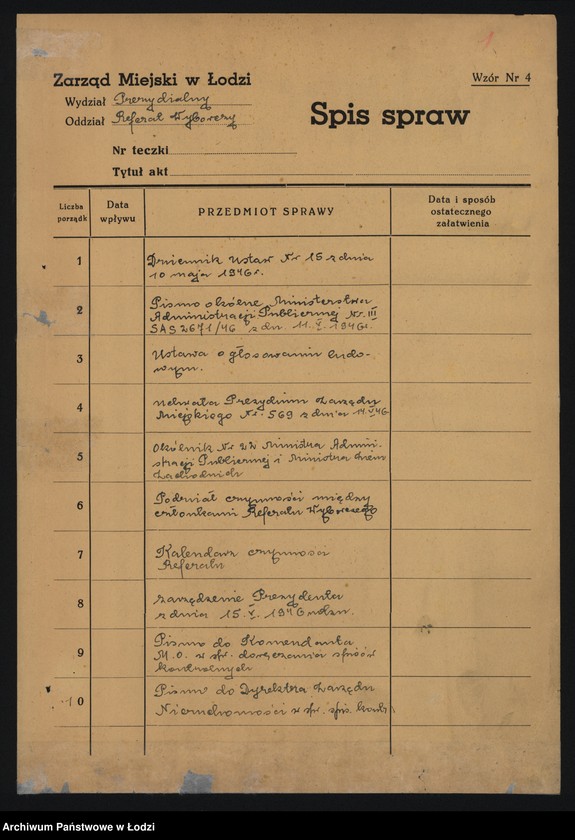 1
Zarząd Miejski w Łodzi
Wzór Nr 4
Wydział Prezydialny
Oddział Referat Wyborczy
Spis spraw
Nr teczki
Tytuł akt
Liczba porządk
Data wpływu
PRZEDMIOT SPRAWY
Data i sposób ostatecznego załatwienia
1
Dziennik Ustaw Nr 15 z dnia
10 maja 1946 r.
2
Pismo okólne Ministerstwa
Administracji Publicznej Nr. III
SAS 2671/46 z dn. 11.V.1946r.
3
Ustawa o głosowaniu ludo-
wym.
4
Uchwała Prezydium Zarządu
Miejskiego Nr. 569 z dnia 14.V.46
5
Okólnik Nr 22 Ministra Admini-
stracji Publicznej i Ministra Ziem
Zachodnich
6
Podział czynności między
członkami Referatu Wyborczego
7
Kalendarz czynności
Referatu
8
Zarządzenie Prezydenta
z dnia 15.V.1946
9
Pismo do Komendanta
M.O. w spr. doręczania spisów
kontrolnych
10
Pismo do Dyrektora Zarządu
Nieruchomości w spr. spis.
Archiwum Państwowe w Łodzi